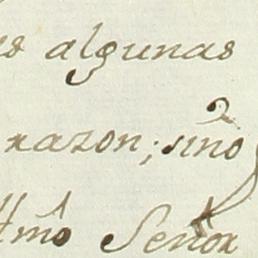 algunas
razon; sino
Ill͞mo Señor